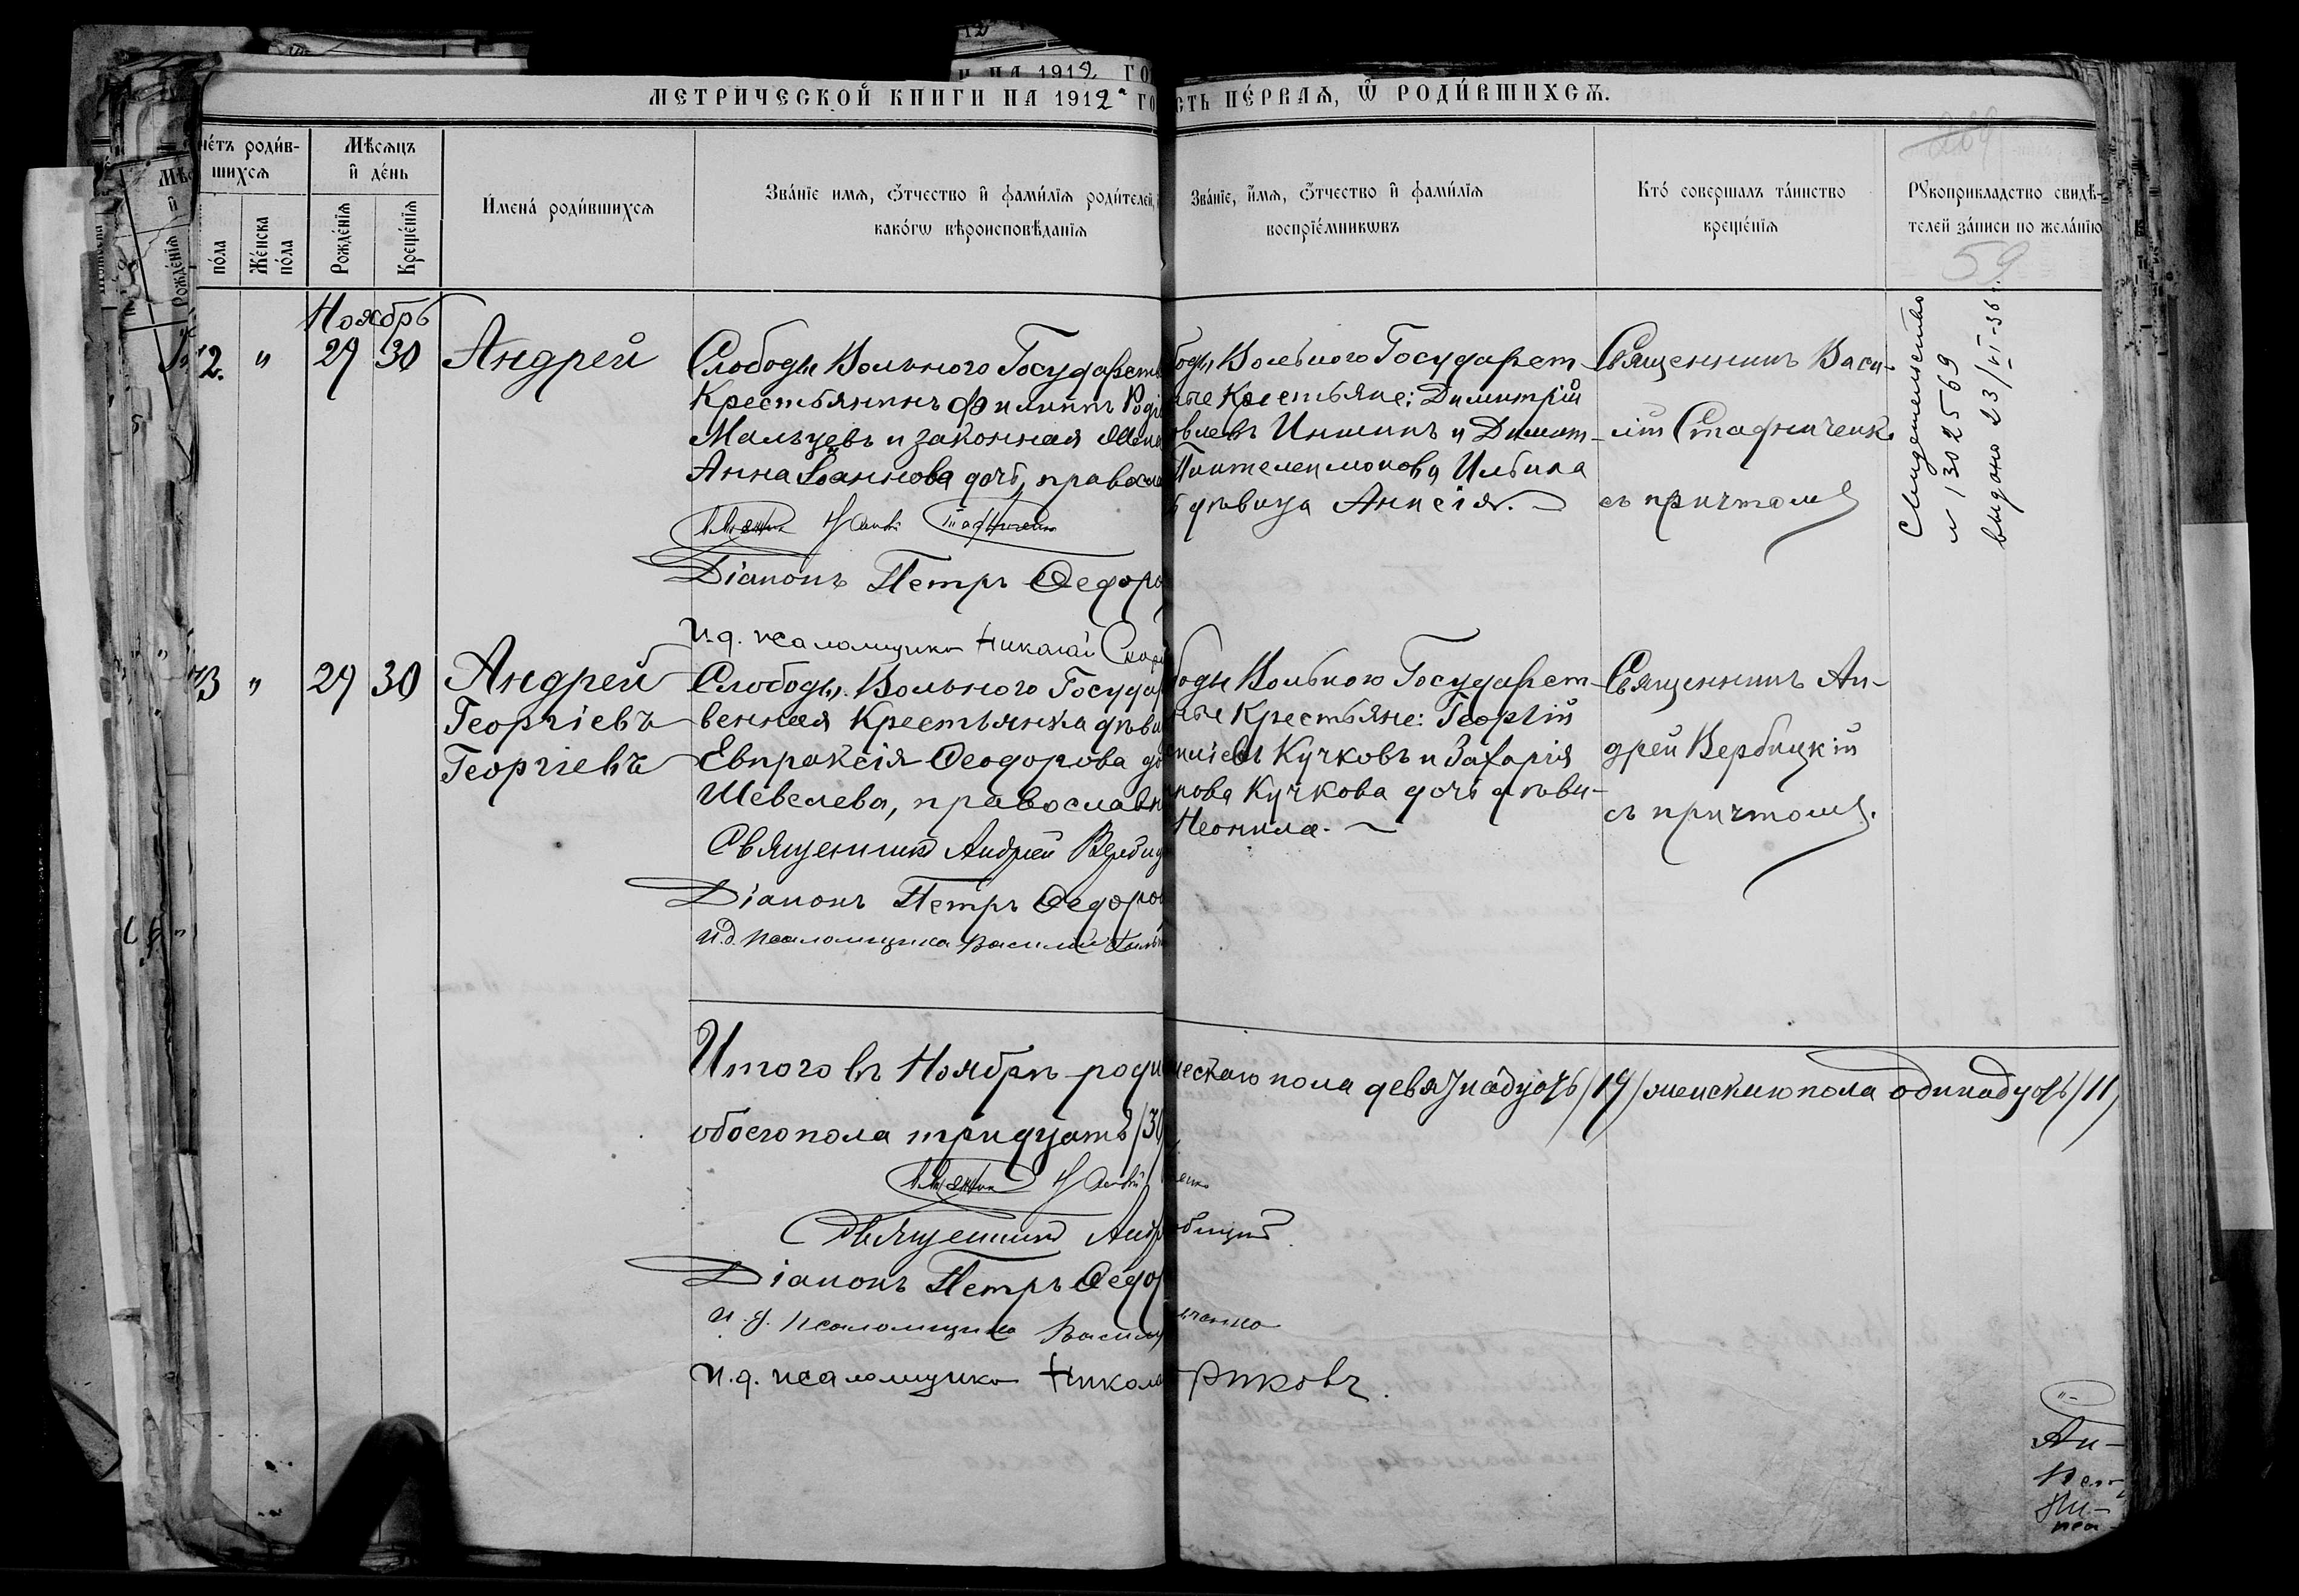 МЕТРИЧЕСКОЙ КНИГИ НА 1912 ГО
СТЬ ПЕ́РВАѦ, Ѿ РОДИ́ВШИХСѦ.
че́тъ роди́в-
шихсѧ
Мѣ́сѧцъ
и҆ де́нь
И҆мена́ роди́вшихсѧ
Зва́нїе имѧ, ѻ҆́тчество и҆ фами́лїѧ роди́телей,
како́гѡ вѣроисповѣ́данїѧ
Зва́нїе, и҆́мѧ, ѻ҆́тчество и҆ фами́лїѧ
воспрїе́мникѡвъ
Кто́ соверша́лъ та́инство
креще́нїѧ
Рꙋкоприкла́дство свидѣ́-
телей за́писи по жела́нїю
по́ла
Же́нска
по́ла
Рожде́нїѧ
Креще́нїѧ
59
Ноябрь
2. " 29 30 Андрей
Слободы Вольного Государств
Крестьянинъ Филиппъ Роді
Мальцевъ и законная жена
Анна Іоаннова дочь, правосла
Діаконъ Петръ Ѳедоро
и.д. псаломщика Николай Скор
боды Вольного Государст-
ные Крестьяне: Димитрій
овлевъ Иншинъ и Димит-
Пантелеимонова Ильина
дѣвица Анисія.
Священникъ Васи-
лій Стафиченк
съ причтомъ
Свидетельство
№ 1302569
выдано 23/VI-36 г.
3 " 29 30 Андрей
Георгіевъ
Георгіевъ
Слободы Вольного Госуда
венная Крестьянка дѣви
Евпраксія Ѳеодорова до
Шевелева, православн
Священникъ Андрей Вербиц
Діаконъ Петръ Ѳедоров
И.д. псаломщика Василій
боды Вольного Государст-
ные Крестьяне: Георгій
Кучковъ и Захарія
нова Кучкова дочь дѣви-
Неонила.
Священникъ Ан-
дрей Вербицкій
съ причтомъ.
Итого въ Ноябрѣ роди
жескаго пола девятнадцать /19/ женскаго пола одинадцать /11/
обоего пола тридцать /30
Священникъ Андр
рбицкій
Діаконъ Петръ Ѳедор
и.д. псаломщика Васил
ьченко
И.д. псаломщика Никола
риковъ.
Ан-